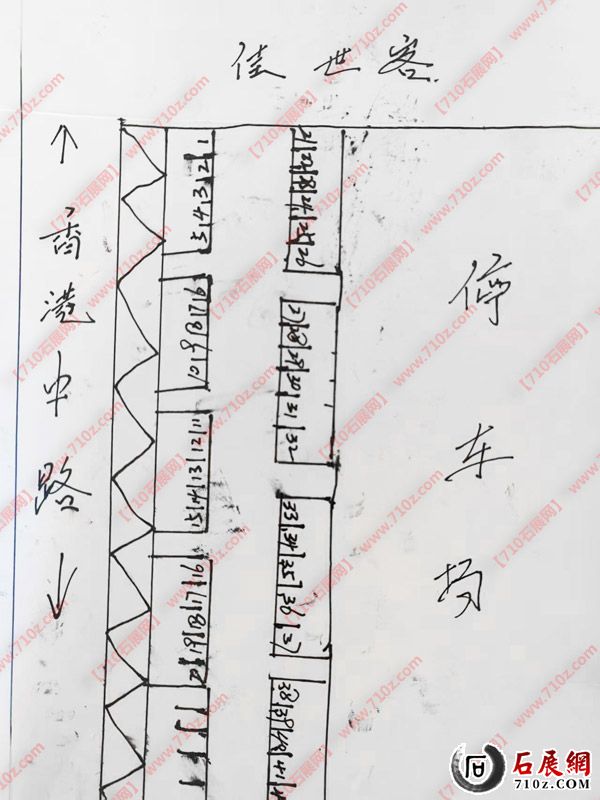 佳世客
↑
商港中路
↓
停车场
5 4 3 2 1
10 9 8 7 6
15 14 13 12 11
20 19 18 17 16
21 22 23 24 25 26
27 28 29 30 31 32
33 34 35 36 37
38 39 40 41
【710石展网】
www.710z.com
石展網
710z.com